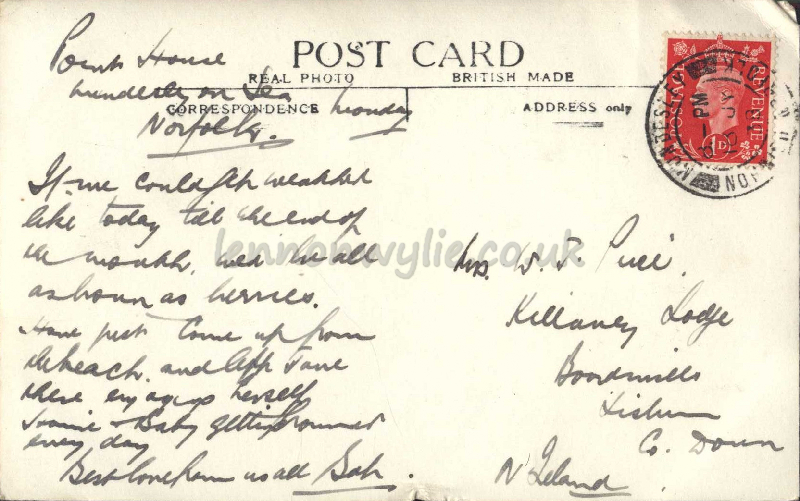 POST CARD
REAL PHOTO BRITISH MADE
CORRESPONDENCE ADDRESS only
Point House
Mundesley on Sea
Norfolk. Monday
If we could get weather
like today till the end of
the month, we'd be all
as brown as berries.
Have just come up from
the beach. and left Jane
there enjoying herself
Baby getting browned
every day
Best love from us all Bob.
Mrs. W. J.
Killaney Lodge
Boardmills
Lisburn
Co. Down
N Ireland
POSTAGE REVENUE
1D
MUNDESLEY
NORFOLK
PM
JY
38
lennonwylie.co.uk